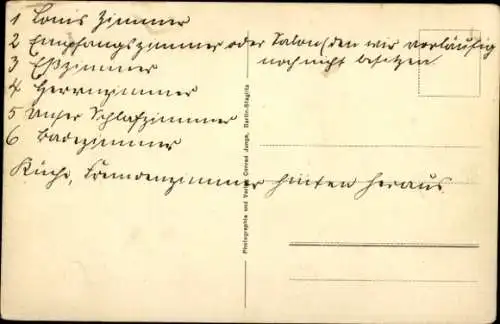 1 Louis Zimmer
2 Empfangszimmer oder Salon (den wir vorläufig
noch nicht besitzen
3 Eßzimmer
4 Herrnzimmer
5 Unser Schlafzimmer
6 Badezimmer
Küche, Fremdenzimmer hinten heraus.
Photographie und Verlag Conrad Junga, Berlin-Steglitz